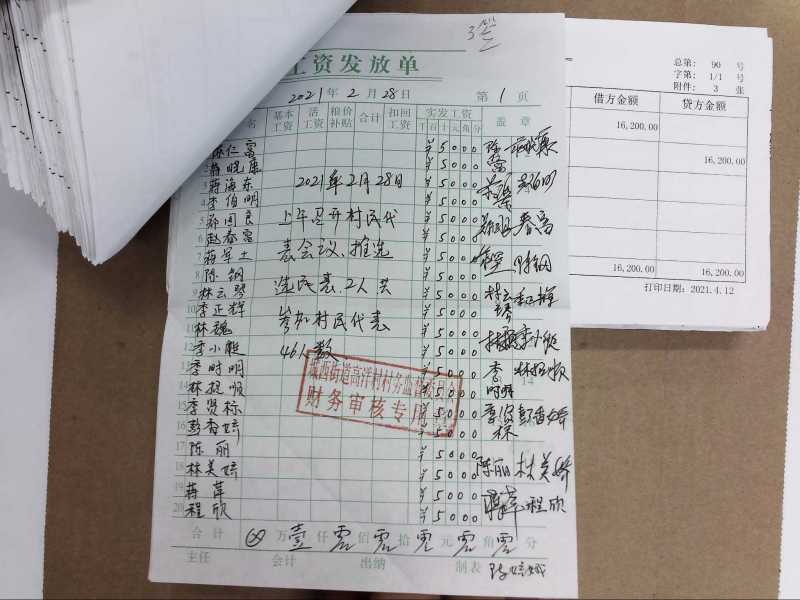 工资发放单
2021年2月28日 第1页
名 基本工资 活工资 粮价补贴 合计 扣回工资 实发工资 千百十元角分 盖章
1 陈仁富 ¥5000
2 蒋晓康 ¥5000
3 蒋海东 2021年2月28日 ¥5000
4 李伯明 ¥5000
5 郑国良 上午召开村民代 ¥5000
6 赵春富 ¥5000
7 蒋军土 表会议、推选 ¥5000
8 陈钢 ¥5000
9 林云琴 选民表.2人共 ¥5000
10 李正辉 ¥5000
11 林魏 参加村民代表 ¥5000
12 李小 ¥5000
13 李时明 46人数 ¥5000
14 林挺顺 ¥5000
15 李贤标 ¥5000
16 彭香娇 ¥5000
17 陈丽 ¥5000
18 林美娇 ¥5000
19 蒋萍 ¥5000
20 程欣 ¥5000
城西街道高洋村村务监督委员会
财务审核专用
陈丽 林美娇
程欣
合计 ⊗万壹仟零佰零拾零元零角零分
主任 会计 出纳 制表
总第: 90 号
字第: 1/1 号
附件: 3 张
借方金额 贷方金额
16,200.00
16,200.00
16,200.00 16,200.00
打印日期: 2021.4.12